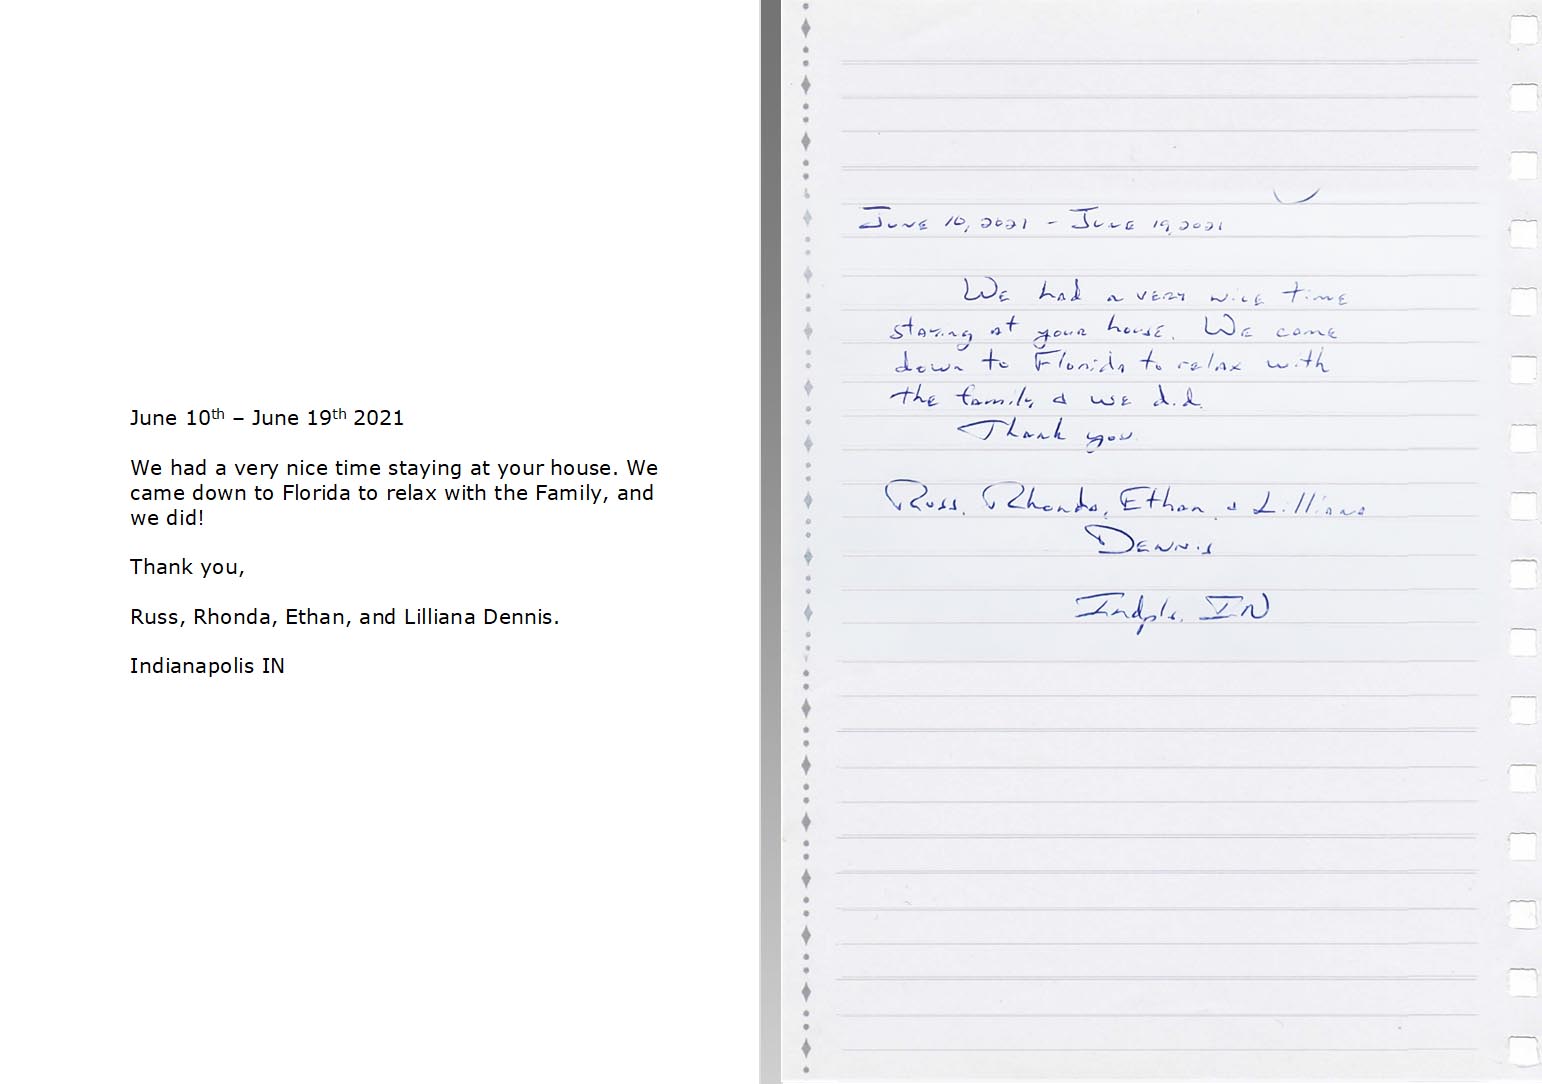 June 10th – June 19th 2021
We had a very nice time staying at your house. We
came down to Florida to relax with the Family, and
we did!
Thank you,
Russ, Rhonda, Ethan, and Lilliana Dennis.
Indianapolis IN
June 10, 2021 - June 19, 2021
We had a very nice time
staying at your house. We came
down to Florida to relax with
the family & we did.
Thank you.
Russ, Rhonda, Ethan, & Lilliana
Dennis
Indpls, IN